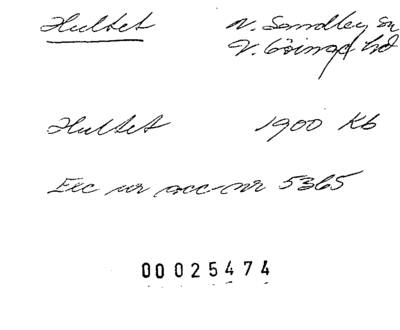 Hultet N. Sandby sn
V. Göinge hd
Hultet 1900 Kb
Exc ur acc-nr 5365
00025474